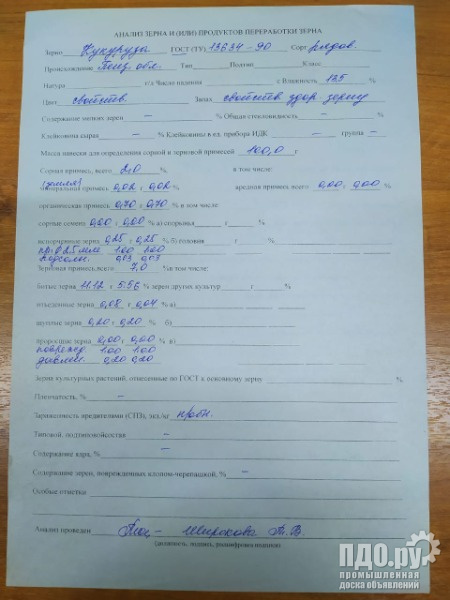 АНАЛИЗ ЗЕРНА И (ИЛИ) ПРОДУКТОВ ПЕРЕРАБОТКИ ЗЕРНА
Зерно Кукуруза ГОСТ (ТУ) 13634-90 Сорт рядов.
Происхождение Пенз. обл. Тип Подтип Класс
Натура г/л Число падения с Влажность 12,5 %
Цвет свойств. Запах свойств здор. зерну
Содержание мелких зерен – % Общая стекловидность – %
Клейковина сырая – % Клейковины в ед. прибора ИДК – группа –
Масса навески для определения сорной и зерновой примесей 100,0 г
Сорная примесь, всего 2,0 % в том числе:
(земля)
минеральная примесь 0,02 г 0,02 % вредная примесь всего 0,00, 0,00 %
органическая примесь 0,70 г 0,70 % в том числе:
сорные семена 0,20 г 0,20 % а) спорынья г %
испорченные зерна 0,25 г 0,25 % б) головня г %
пр. 2,5 мм 1,00 1,00
0,03 0,03
Зерновая примесь всего 7,0 % в том числе:
битые зерна 11.12 г 5.56 % зерен других культур г %
изъеденные зерна 0,08 г 0,04 % а)
щуплые зерна 0,20 г 0,20 % б)
проросшие зерна 0,00 г 0,00 % в)
поврежд. 1.00 1.00
0,20 0,20
Зерна культурных растений, отнесенные по ГОСТ к основному зерну %
Пленчатость, % –
Зараженность вредителями (СПЗ), экз./кг не обн.
Типовой, подтиповой состав –
Содержание ядра, % –
Содержание зерен, поврежденных клопом-черепашкой, % –
Особые отметки
Анализ проведен Широкова Т. В.
(должность, подпись, расшифровка подписи)
ПДО.ру
промышленная
доска объявлений